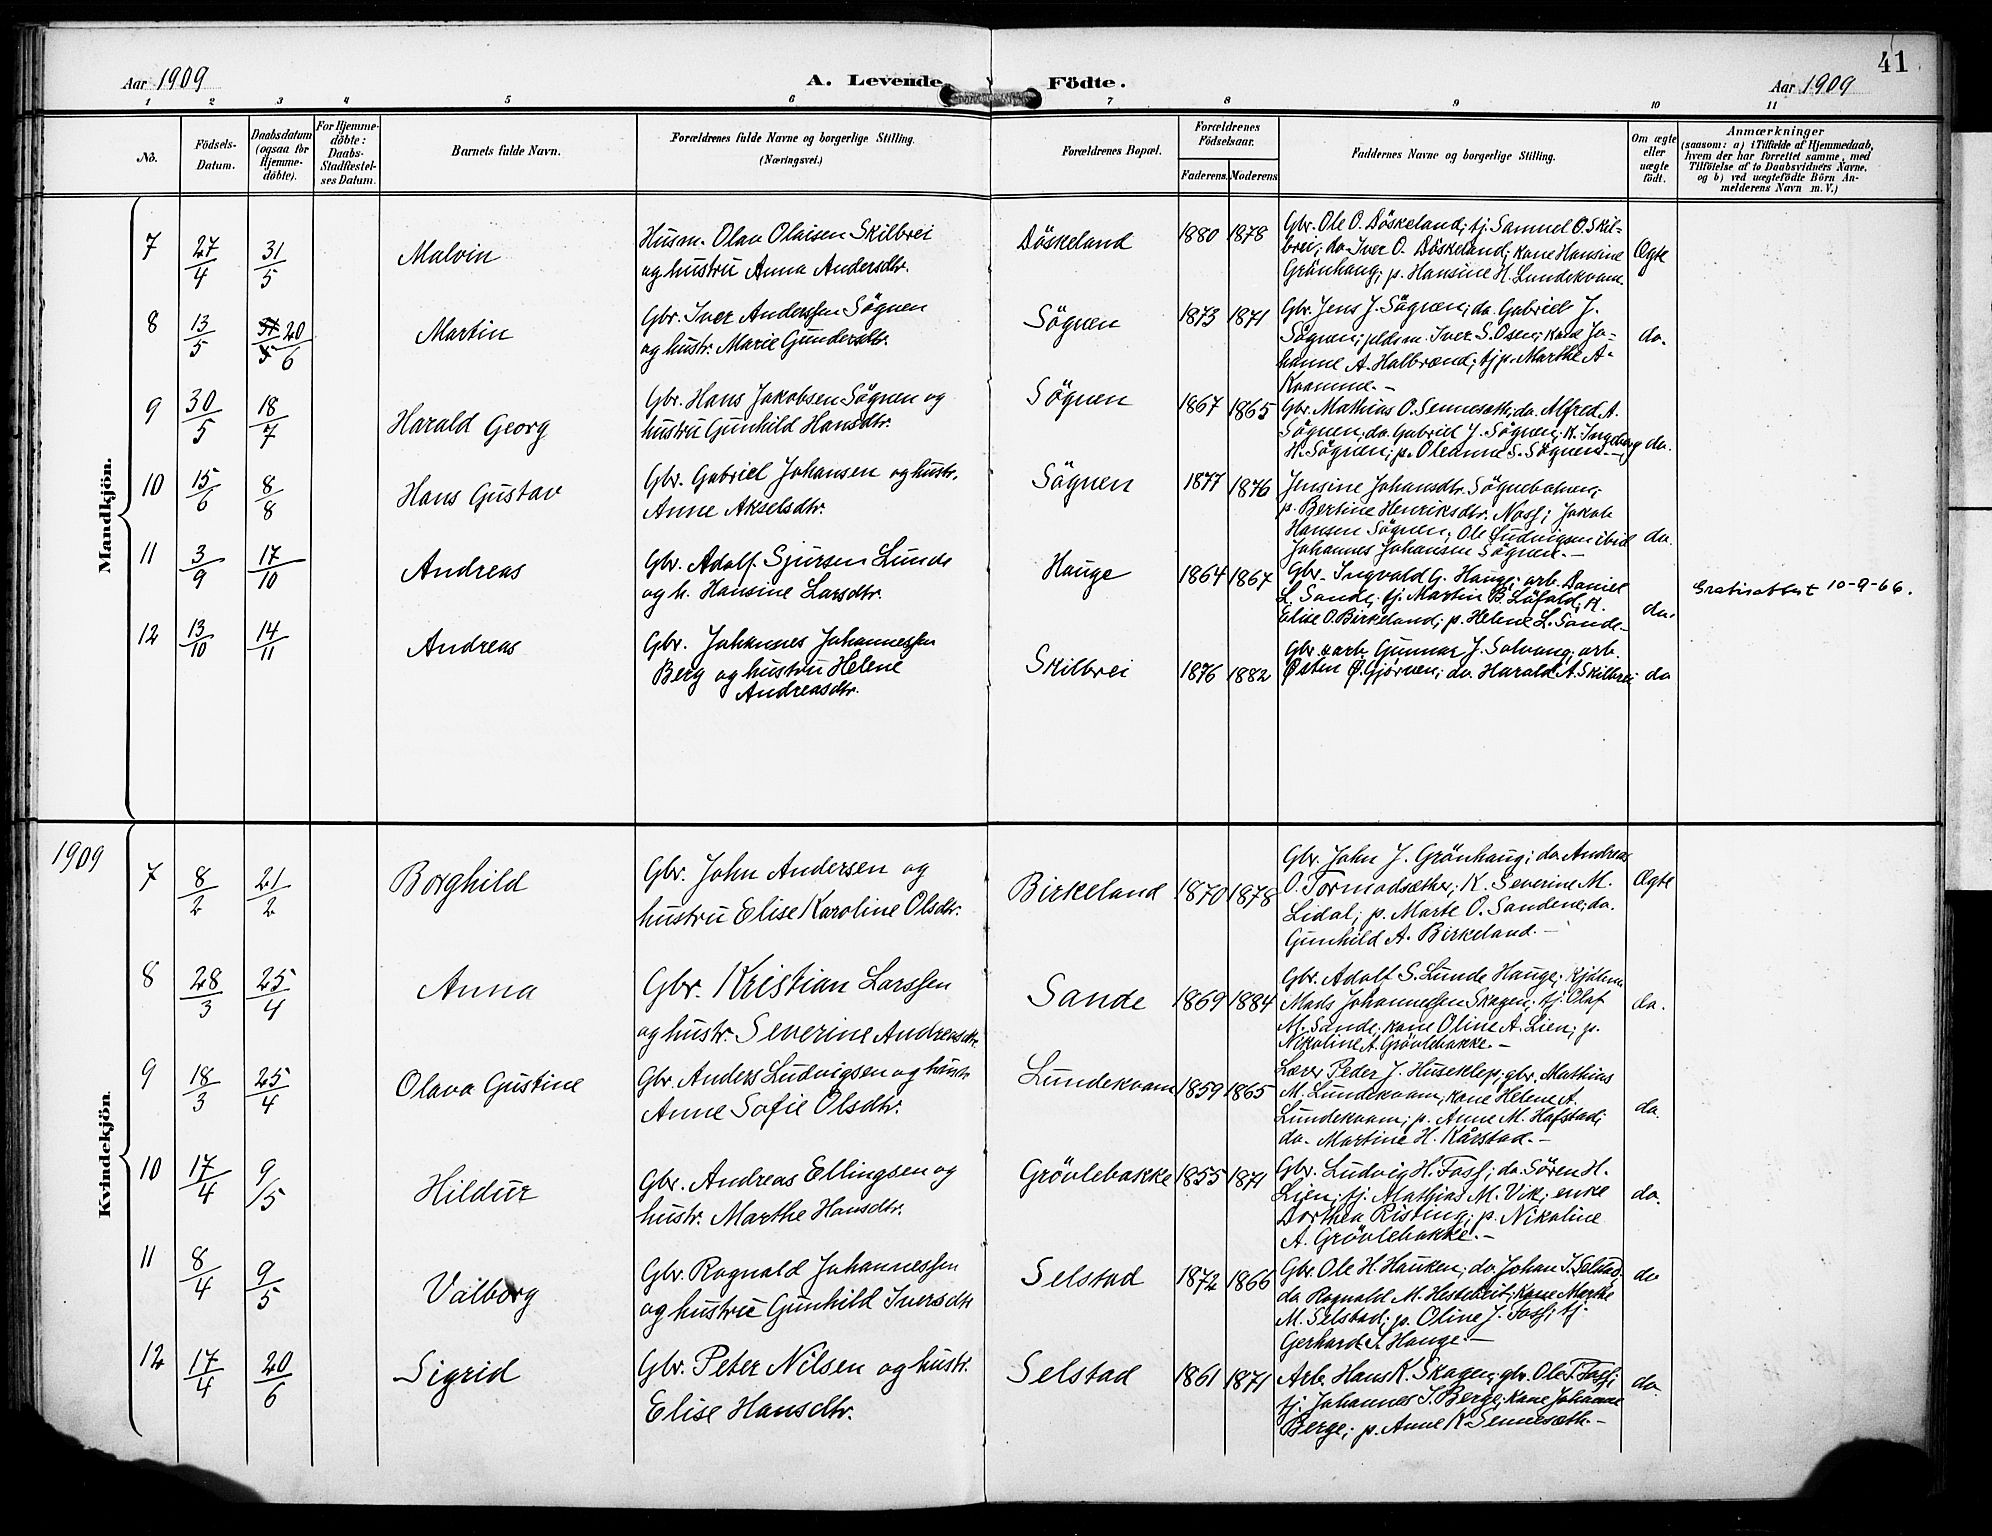 41
Aar 1909
A. Levende Födte.
Aar 1909
1 2 3 4 5 6 7 8 9 10 11
No.
Födsels-Datum.
Daabsdatum (ogsaa for Hjemme-döbte).
For Hjemme-döbte: Daabs-Stadfestel-ses Datum.
Barnets fulde Navn.
Forældrenes fulde Navne og borgerlige Stilling.
(Næringsvei.)
Forældrenes Bopæl.
Forældrenes Födselsaar.
Faderens. Moderens
Faddernes Navne og borgerlige Stilling.
Om ægte eller uægte födt.
Anmærkninger
(saasom: a) i Tilfælde af Hjemmedaab,
hvem der har forrettet samme, med
Tilföielse af to Daabsvidners Navne,
og b) ved uægtefödte Börn An-
melderens Navn m. V.)
Mandkjön.
7 27/4 31/5 Malvin
Husm. Olav Olaisen Skilbrei
og hustru Anna Andersdtr.
Döskeland 1880 1878
Gbr. Ole O. Döskeland; tj. Samuel O. Skil-
brei; do. Iver O. Döskeland; kone Hansine
Grönhaug; p. Hansine H. Lundekvam
Ægte
8 13/5 31/5 20/6 Martin
Gbr. Iver Anderssen Sögnen
og hustr. Marie Gundersdtr.
Sögnen 1873 1871
Gbr. Jens J. Sögnen; do. Gabriel J.
Sögnen; pldsm. Iver S. Osen; kone Jo-
hanne A. Halbrænd; tj.p. Marthe A.
Kvamme.-
do.
9 30/5 18/7 Harald Georg
Gbr. Hans Jakobsen Sögnen og
hustru Gunhild Hansdtr.
Sögnen 1867 1865
Gbr. Mathias O. Sennesæth; do. Alfred A.
Sögnen; do. Gabriel J. Sögnen; K. Ingeborg
H. Sögnen; p. Oledine S. Sögnen.-
do.
10 15/6 8/8 Hans Gustav
Gbr. Gabriel Johansen og hustr.
Anne Akselsdtr.
Sögnen 1877 1876
Jensine Johansdtr.
p. Bertine Henriksdtr. Noss; Jakob
Hansen Sögnen; Ole Ludvigsen ibid
Johannes Johansen Sögnen.-
do.
11 3/9 17/10 Andreas
Gbr. Adolf Sjursen Lunde
og h. Hansine Larsdtr.
Hauge 1864 1867
Gbr. Ingvald G. Hauge; arb. Daniel
L. Sande; tj. Martin B. Löfald; K.
Elise O. Birkeland; p. Helene L. Sande-
do.
Gratisattest 10-9-66.
12 13/10 14/11 Andreas
Gbr. Johannes Johannessen
Berg og hustru Helene
Andreasdtr.
Skilbrei 1876 1882
Gbr. & arb. Gunnar J. Solvang; arb.
Østen Ø. Gjörven; do. Harald A. Skilbrei
do
1909
Kvindekjön.
7 8/2 21/2 Borghild
Gbr. John Andersen og
hustru Elise Karoline Olsdtr.
Birkeland 1870 1978
Gbr. John J. Grönhaug; do. Andreas
O. Tormodsæther; K. Severine M.
Lidal; p. Marte O. Sandene; do.
Gunhild A. Birkeland.-
Ægte
8 28/3 25/4 Anna
Gbr. Kristian Larssen
og hustr. Severine Andreasdtr.
Sande 1869 1884
Gbr. Adolf S. Lunde Hauge;
Mads Johannessen Skagen; tj. Olaf
M. Sande; kone Oline A. Lien; p.
Nikoline A. Grövlebakke.-
do.
9 18/3 25/4 Olava Gustine
Gbr. Anders Ludvigsen og hustr
Anne Sofie Olsdtr.
Lundekvam 1859 1865
Lærer Peder J. Huseklep; gbr. Mathias
M. Lundekvam; kone Helene A.
Lundekvam; p. Anne M. Hafstad;
do. Martine H. Kårstad.-
do.
10 17/4 9/5 Hildur
Gbr. Andreas Ellingsen og
hustr. Marthe Hansdtr.
Grövlebakke 1855 1871
Gbr. Ludvig H. Foss; do. Sören H.
Lien; tj. Mathias M. Vik; enke
Dorthea Risting; p. Nikoline
A. Grövlebakke.-
do.
11 8/4 9/5 Valborg
Gbr. Ragnald Johannessen
og hustru Gunhild Iversdtr
Selstad 1872 1866
Gbr. Ole H. Hauken; do. Johan I. Selstad
do Ragnald M. Hestebeit; Kone Merke
M. Selstad; p. Oline J. Foss; tj.
Gerhard S. Hauge.-
do
12 17/4 20/6 Sigrid
Gbr. Peter Nilsen og hustr.
Elise Hansdtr.
Selstad 1861 1871
Arb. Hans K. Skagen; gbr. Ole T. Foss;
tj. Johannes I. Berge; kone Johanne
Berge; p. Anne K. Sennesæth.-
do.